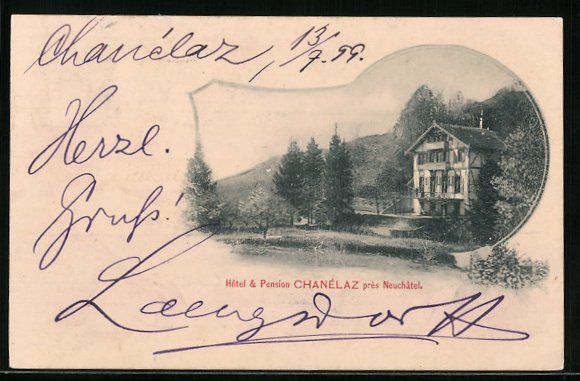 Chanélaz, 13/7.99.
Herzl.
Gruß!
Hôtel & Pension CHANÉLAZ près Neuchâtel.
Langsdorff